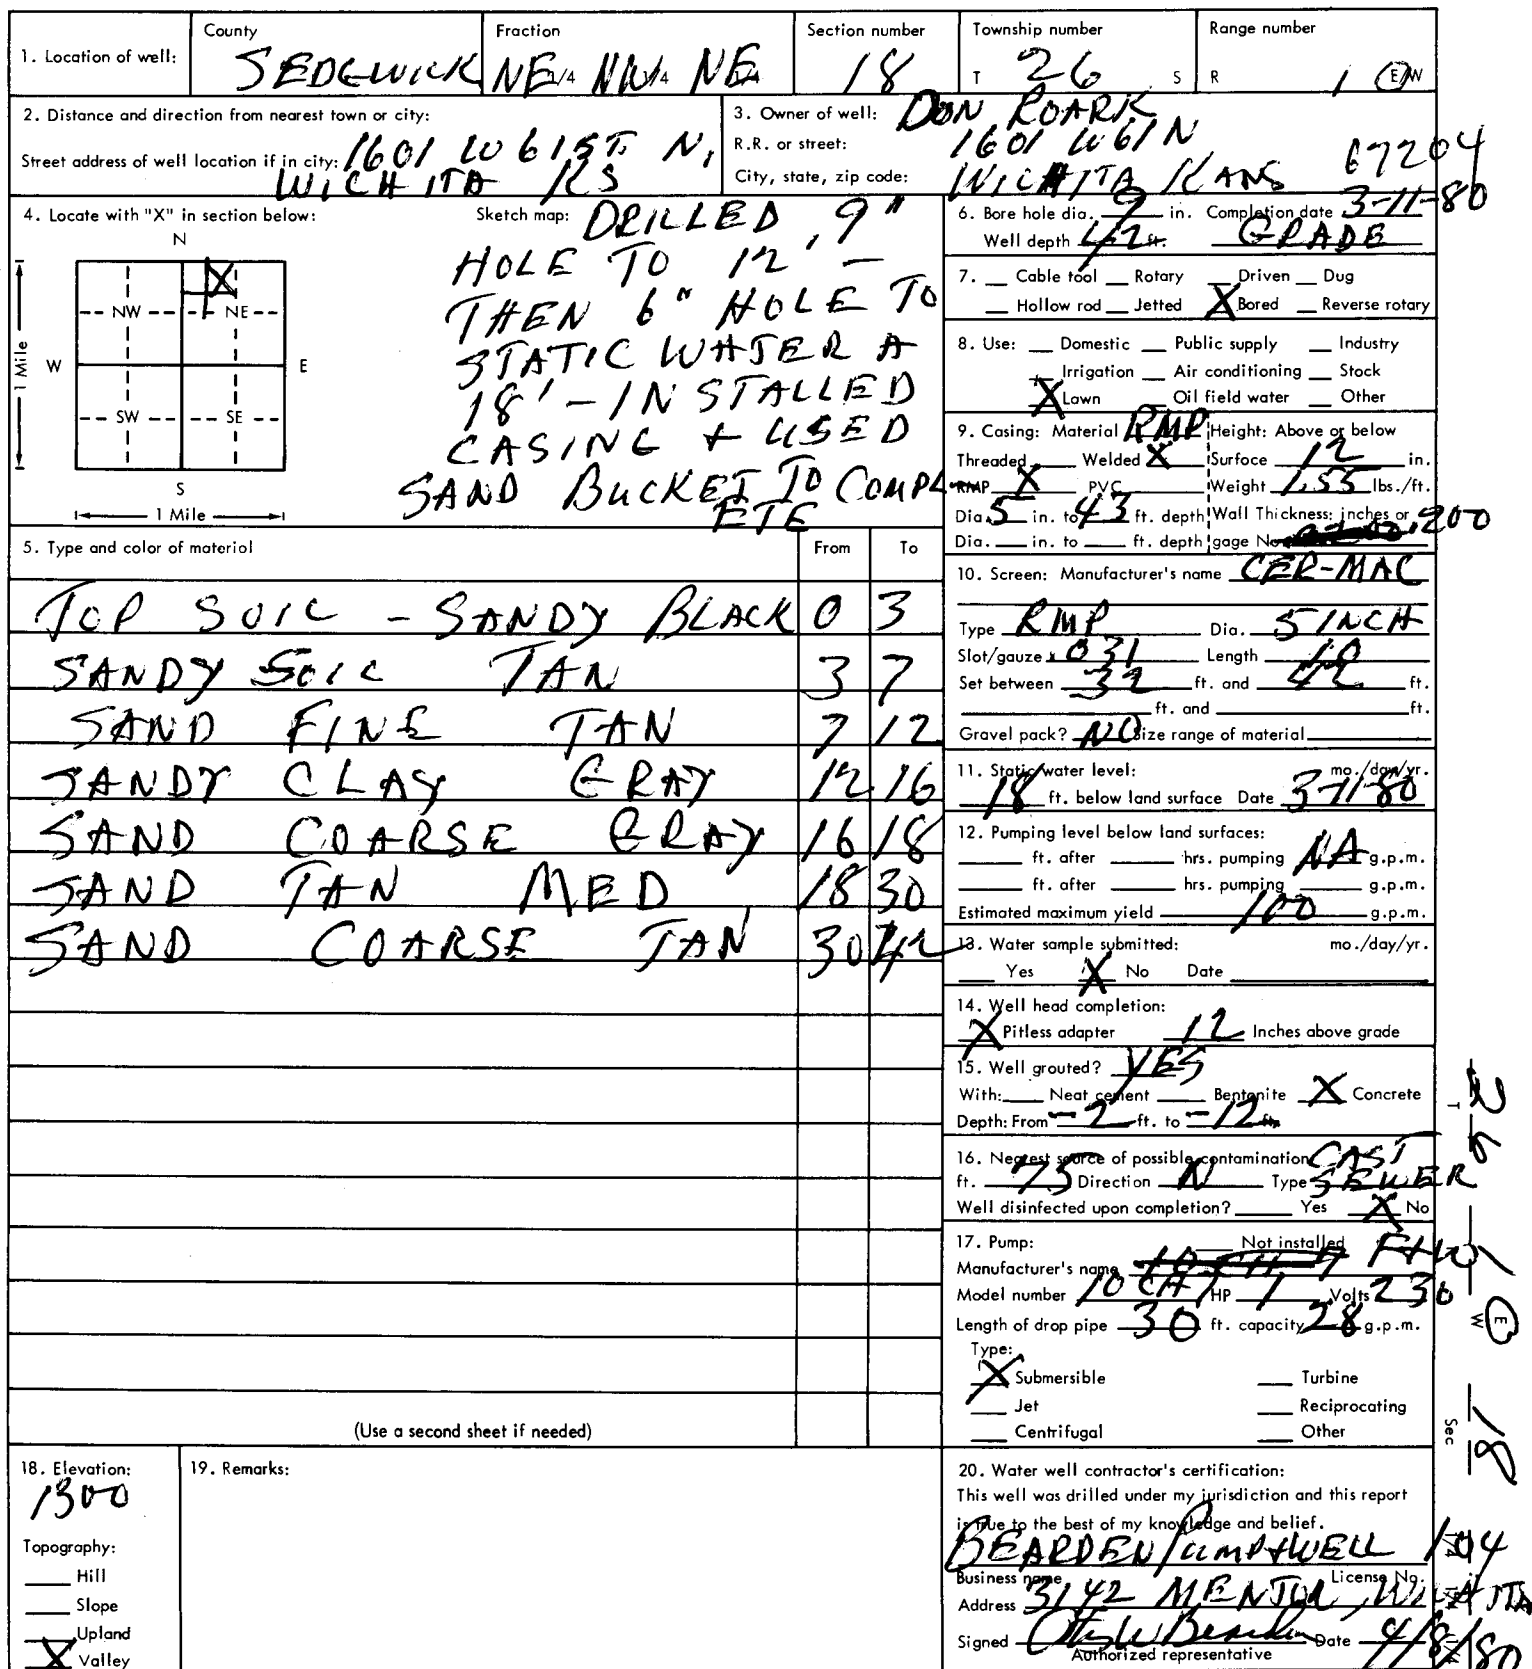 County Fraction Section number Township number Range number
1. Location of well: SEDGWICK NE 1/4 NW 1/4 NE 1/4 18 T 26 S R 1 E/W
2. Distance and direction from nearest town or city:
Street address of well location if in city: 1601 W 61 ST. N.
WICHITA KS
3. Owner of well: DON ROARK
R.R. or street: 1601 W 61 N
City, state, zip code: WICHITA KANS 67204
4. Locate with "X" in section below:
N
NW NE
W E
SW SE
S
1 Mile
1 Mile
X
Sketch map: DRILLED 9"
HOLE TO 12' -
THEN 6" HOLE TO
STATIC WATER A
18' - INSTALLED
CASING + USED
SAND BUCKET TO COMPL
ETE
5. Type and color of material From To
TOP SOIL - SANDY BLACK 0 3
SANDY SOIL TAN 3 7
SAND FINE TAN 7 12
SANDY CLAY GRAY 12 16
SAND COARSE GRAY 16 18
SAND TAN MED 18 30
SAND COARSE TAN 30 42
(Use a second sheet if needed)
6. Bore hole dia. 9 in. Completion date 3-11-80
Well depth 42 ft. GRADE
7. Cable tool Rotary Driven Dug
Hollow rod Jetted X Bored Reverse rotary
8. Use: Domestic Public supply Industry
Irrigation Air conditioning Stock
X Lawn Oil field water Other
9. Casing: Material RMP Height: Above or below
Threaded Welded X Surface 12 in.
RMP X PVC Weight 1.55 lbs./ft.
Dia. 5 in. to 43 ft. depth Wall Thickness: inches or
Dia. in. to ft. depth gage No. .200
10. Screen: Manufacturer's name CER-MAC
Type RMP Dia. 5 INCH
Slot/gauze .031 Length 10
Set between 32 ft. and 42 ft.
ft. and ft.
Gravel pack? NO Size range of material
11. Static water level: mo./day/yr.
18 ft. below land surface Date 3-11-80
12. Pumping level below land surfaces:
ft. after hrs. pumping NA g.p.m.
ft. after hrs. pumping g.p.m.
Estimated maximum yield 100 g.p.m.
13. Water sample submitted: mo./day/yr.
Yes X No Date
14. Well head completion:
X Pitless adapter 12 Inches above grade
15. Well grouted? YES
With: Neat cement Bentonite X Concrete
Depth: From -2 ft. to -12 ft.
16. Nearest source of possible contamination: CAST
ft. 75 Direction N Type SEWER
Well disinfected upon completion? Yes X No
17. Pump: Not installed
Manufacturer's name F+W
Model number 10 CH 7 HP 1 Volts 230
Length of drop pipe 30 ft. capacity 28 g.p.m.
Type:
X Submersible Turbine
Jet Reciprocating
Centrifugal Other
18. Elevation:
1300
Topography:
Hill
Slope
Upland
X Valley
19. Remarks:
20. Water well contractor's certification:
This well was drilled under my jurisdiction and this report
is true to the best of my knowledge and belief.
BEARDEN Pump + WELL 104
Business name License No.
Address 3142 MENTOR, WICHITA
Signed Otis W Bearden Date 4/8/80
Authorized representative
T 26
1 E W
Sec 18